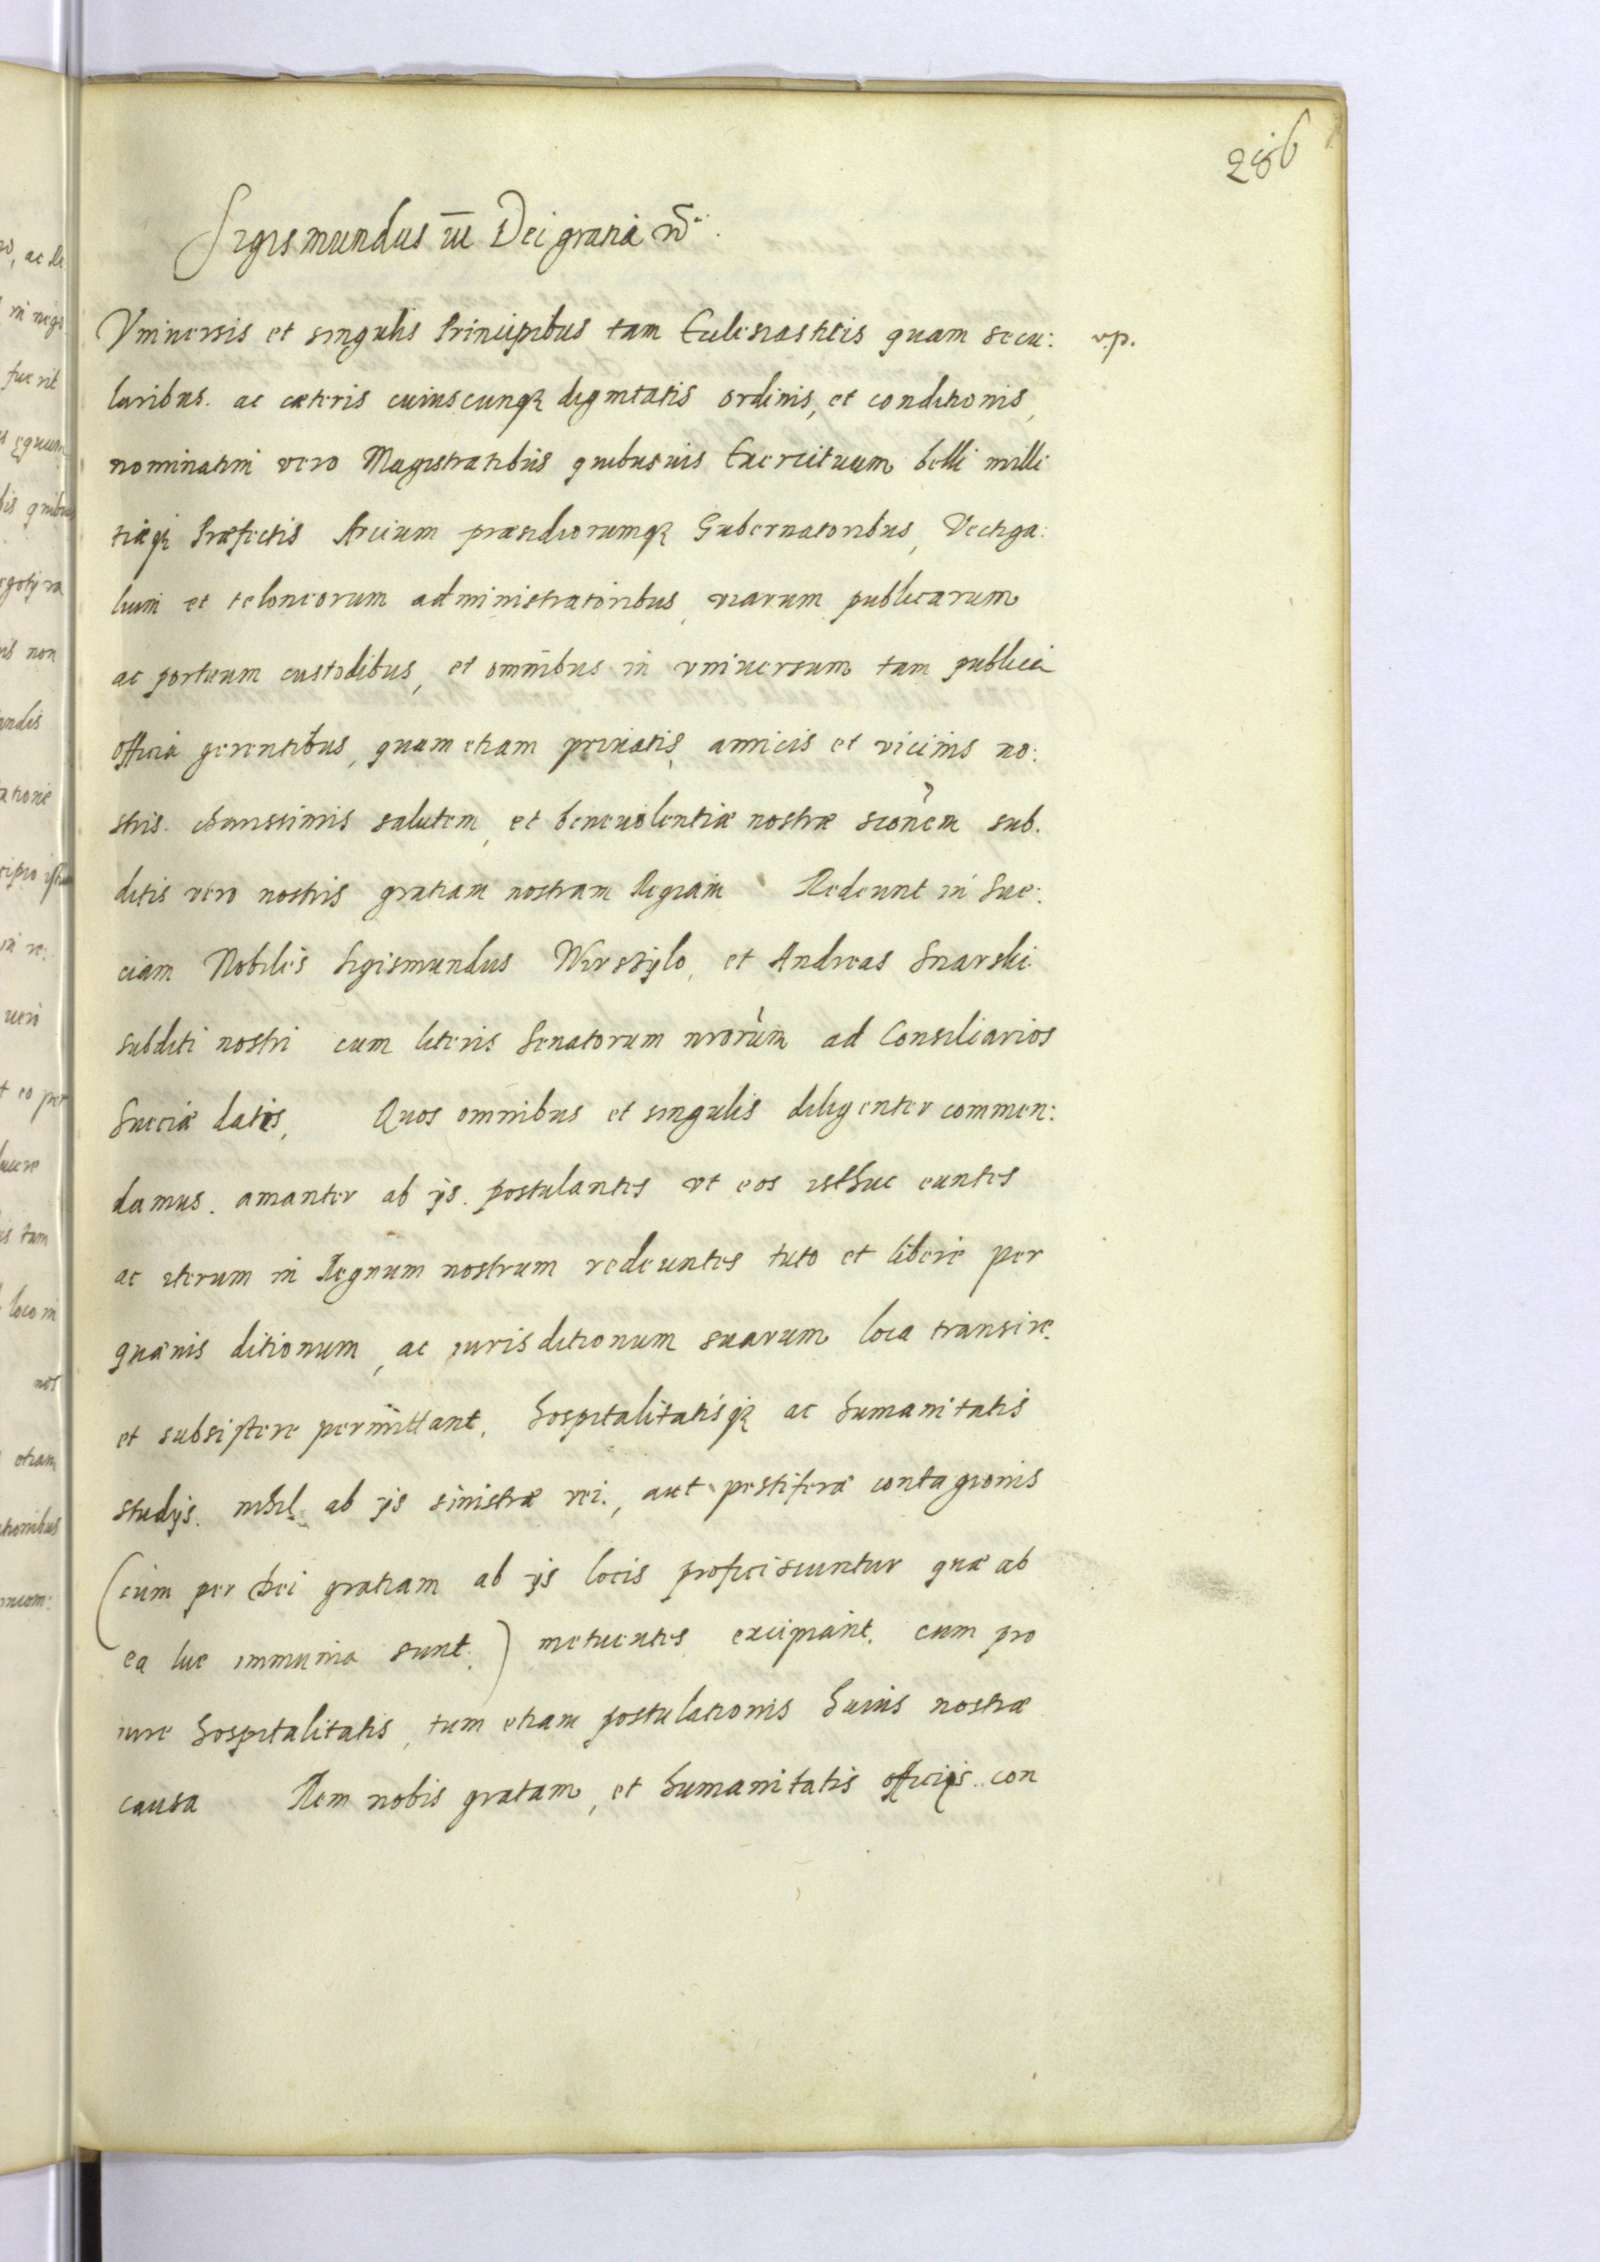 286
Sigismundus III Dei gratia
Vniuersis et singulis Principibus tam Eclesiasticis quam secu: v.p.
laribus. ac cæteris cuiuscunqȝ dignitatis ordinis, et conditionis,
nominatim vero Magistratibus quibusuis Exercituum belli milli
tiæqȝ Præfectis Arcium præsidiorumqȝ Gubernatoribus, Vectiga:
lium et teloneorum administratoribus, viarum publicarum
ac portuum custodibus, et omnibus in vniuersum tam publica
officia gerentibus, quam etiam priuatis, amicis et vicinis no:
stris. charissimis salutem, et beneuolentiæ nostræ sub.
ditis vero nostris gratiam nostram Regiam Redeunt in Sue:
ciam Nobiles Sigismundus Wirszÿlo, et Andreas Snarski
subditi nostri cum literis Senatorum nrorum ad Consiliarios
Sueciæ datis, Quos omnibus et singulis diligenter commen:
damus. amanter ab ijs. postulantes vt eos isthuc euntes
ac iterum in Regnum nostrum redeuntes tuto et libere per
quæuis ditionum, ac iurisditionum suarum loca transire
et subsistere permittant, hospitalitatisqȝ ac humanitatis
studijs. nihil ab ijs sinistræ rei., aut pestiferæ contagionis
(cum per Dei gratiam ab ijs locis proficiscuntur quæ ab
ea lue immunia sunt.) metuentes excipiant. cum pro
iure hospitalitatis, tum etiam postulationis huius nostræ
causa Rem nobis gratam, et humanitatis officijs con